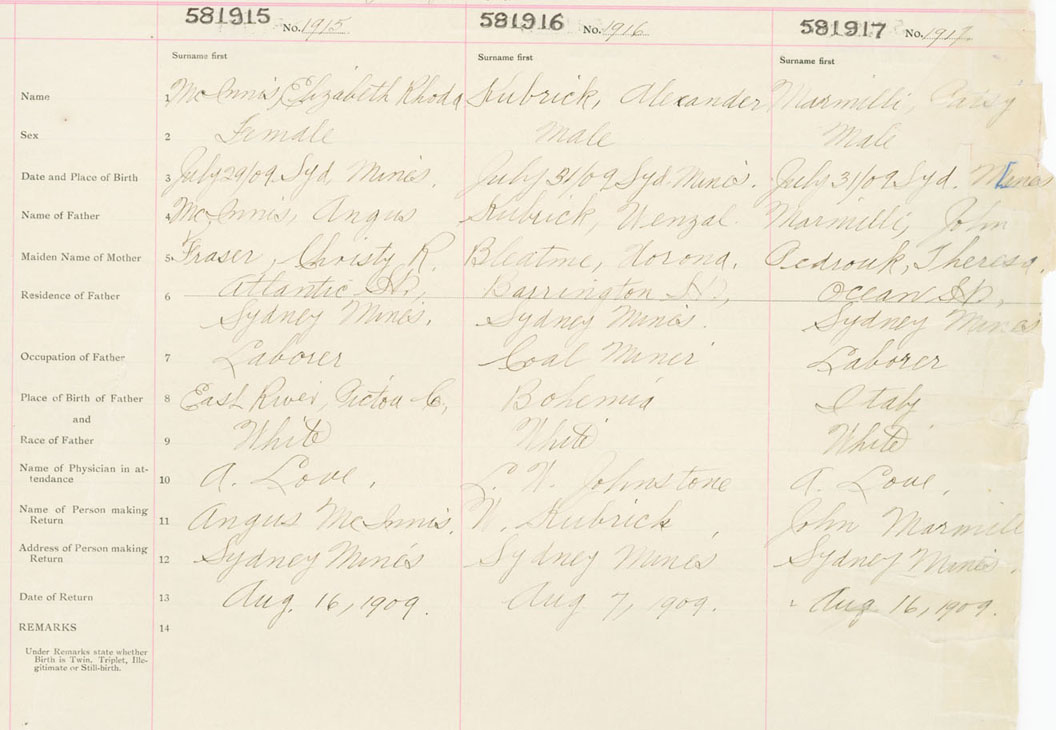 581915 No. 1915 581916 No. 1916 581917 No. 1917
Surname first Surname first Surname first
Name 1 McInnis, Elizabeth Rhoda Kubrick, Alexander Marmilli,
Sex 2 Female Male Male
Date and Place of Birth 3 July 29/09 Syd. Mines. July 31/09 Syd. Mines. July 31/09 Syd. Mines
Name of Father 4 McInnis, Angus Kubrick, Wenzal Marmilli, John
Maiden Name of Mother 5 Fraser, Christy R. Bleatme, Pedrouk, Theresa.
Residence of Father 6 Atlantic St., Barrington St., Ocean St.,
Sydney Mines. Sydney Mines. Sydney Mines
Occupation of Father 7 Laborer Coal Miner Laborer
Place of Birth of Father 8 East River, Pictou Co, Bohemia Italy
and
Race of Father 9 White White White
Name of Physician in at-
tendance 10 A. Love, L. W. Johnstone A. Love,
Name of Person making
Return 11 Angus McInnis. W. Kubrick, John Marmilli
Address of Person making
Return 12 Sydney Mines Sydney Mines Sydney Mines.
Date of Return 13 Aug. 16, 1909. Aug 7, 1909. Aug 16, 1909.
REMARKS 14
Under Remarks state whether
Birth is Twin, Triplet, Ille-
gitimate or Still-birth.